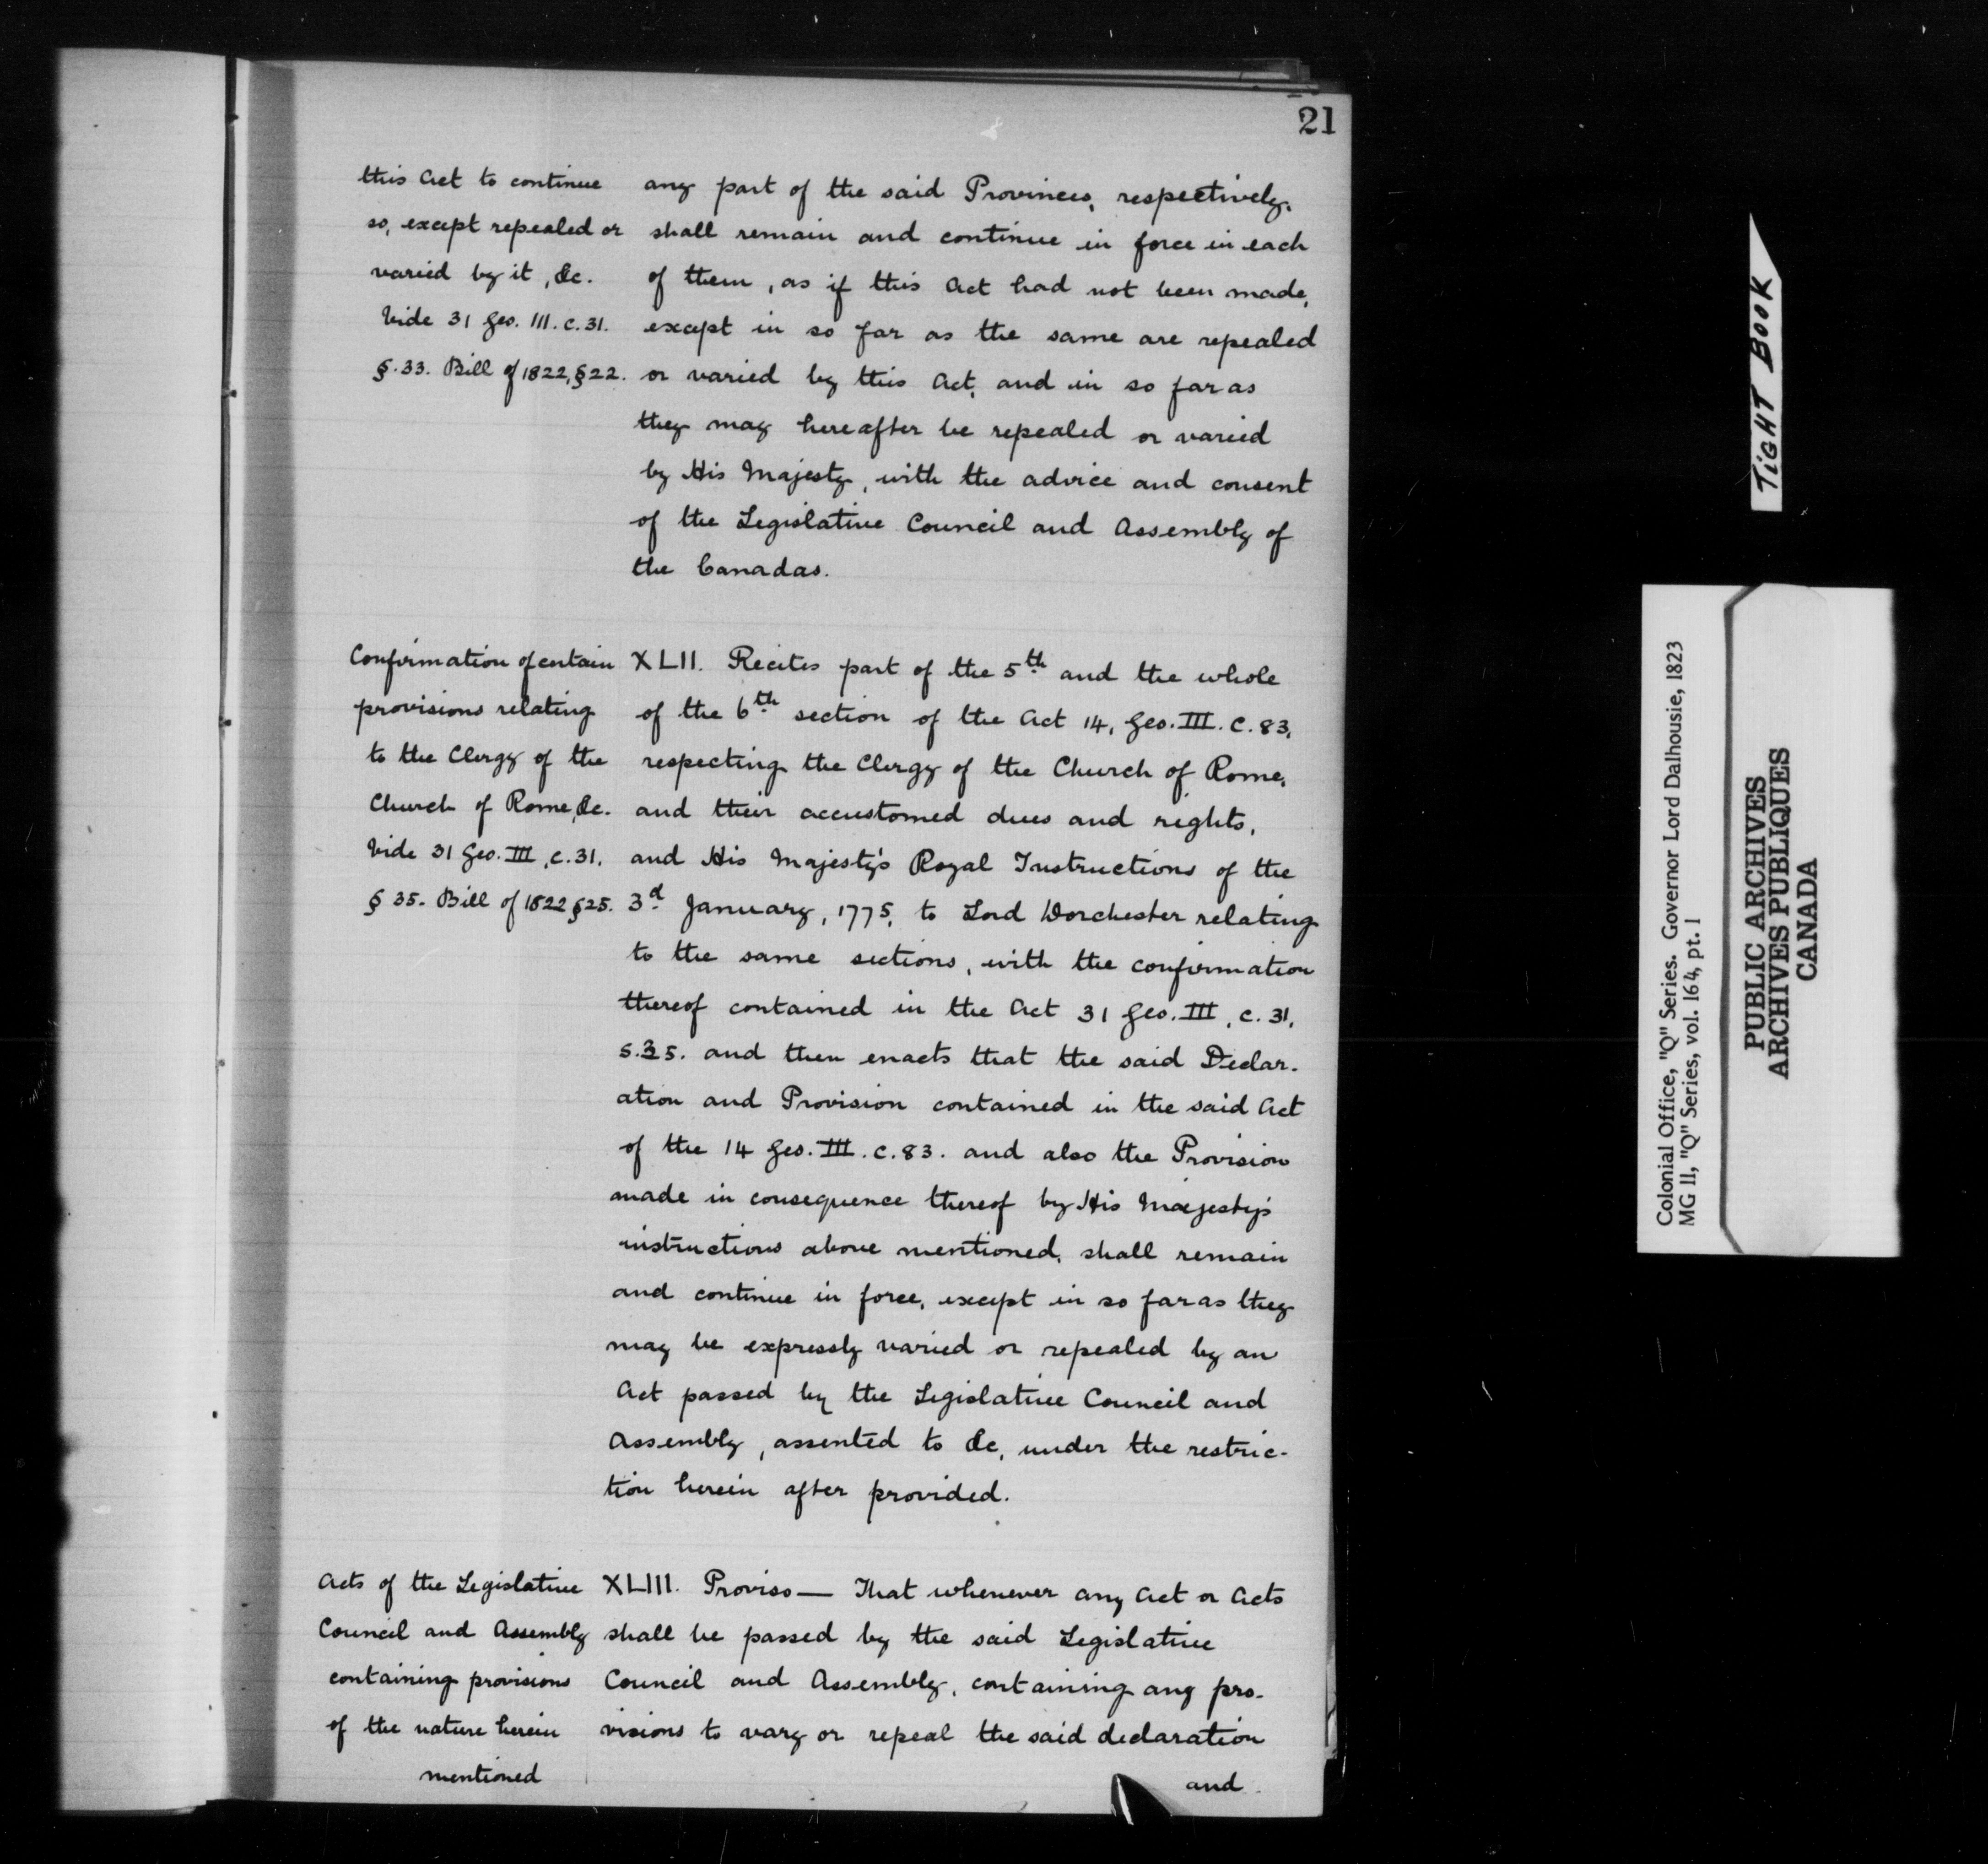 21
this Act to continue
so, except repealed or
varied by it, &c.
Vide 31 Geo. III. c. 31.
§. 33. Bill of 1822, §22.
any part of the said Provinces, respectively,
shall remain and continue in force in each
of them, as if this Act had not been made,
except in so far as the same are repealed
or varied by this Act, and in so far as
they may hereafter be repealed or varied
by His Majesty, with the advice and consent
of the Legislative Council and Assembly of
the Canadas.
Confirmation of certain
provisions relating
to the Clergy of the
Church of Rome, &c.
Vide 31 Geo. III, c. 31.
§ 35. Bill of 1822 §25.
XLII. Recites part of the 5th and the whole
of the 6th section of the Act 14, Geo. III. c. 83,
respecting the Clergy of the Church of Rome,
and their accustomed dues and rights,
and His Majesty's Royal Instructions of the
3d January, 1775, to Lord Dorchester relating
to the same sections, with the confirmation
thereof contained in the Act 31 Geo. III, c. 31,
s. 35. and then enacts that the said Declar-
ation and Provision contained in the said Act
of the 14 Geo. III. c. 83. and also the Provision
made in consequence thereof by His Majesty's
instructions above mentioned, shall remain
and continue in force, except in so far as they
may be expressly varied or repealed by an
Act passed by the Legislative Council and
Assembly, assented to &c, under the restric-
tion herein after provided.
Acts of the Legislative
Council and Assembly
containing provisions
of the nature herein
mentioned
XLIII. Proviso— That whenever any Act or Acts
shall be passed by the said Legislative
Council and Assembly, containing any pro-
visions to vary or repeal the said declaration
and
TIGHT BOOK
Colonial Office, "Q" Series. Governor Lord Dalhousie, 1823
MG 11, "Q" Series, vol. 164, pt. 1
PUBLIC ARCHIVES
ARCHIVES PUBLIQUES
CANADA